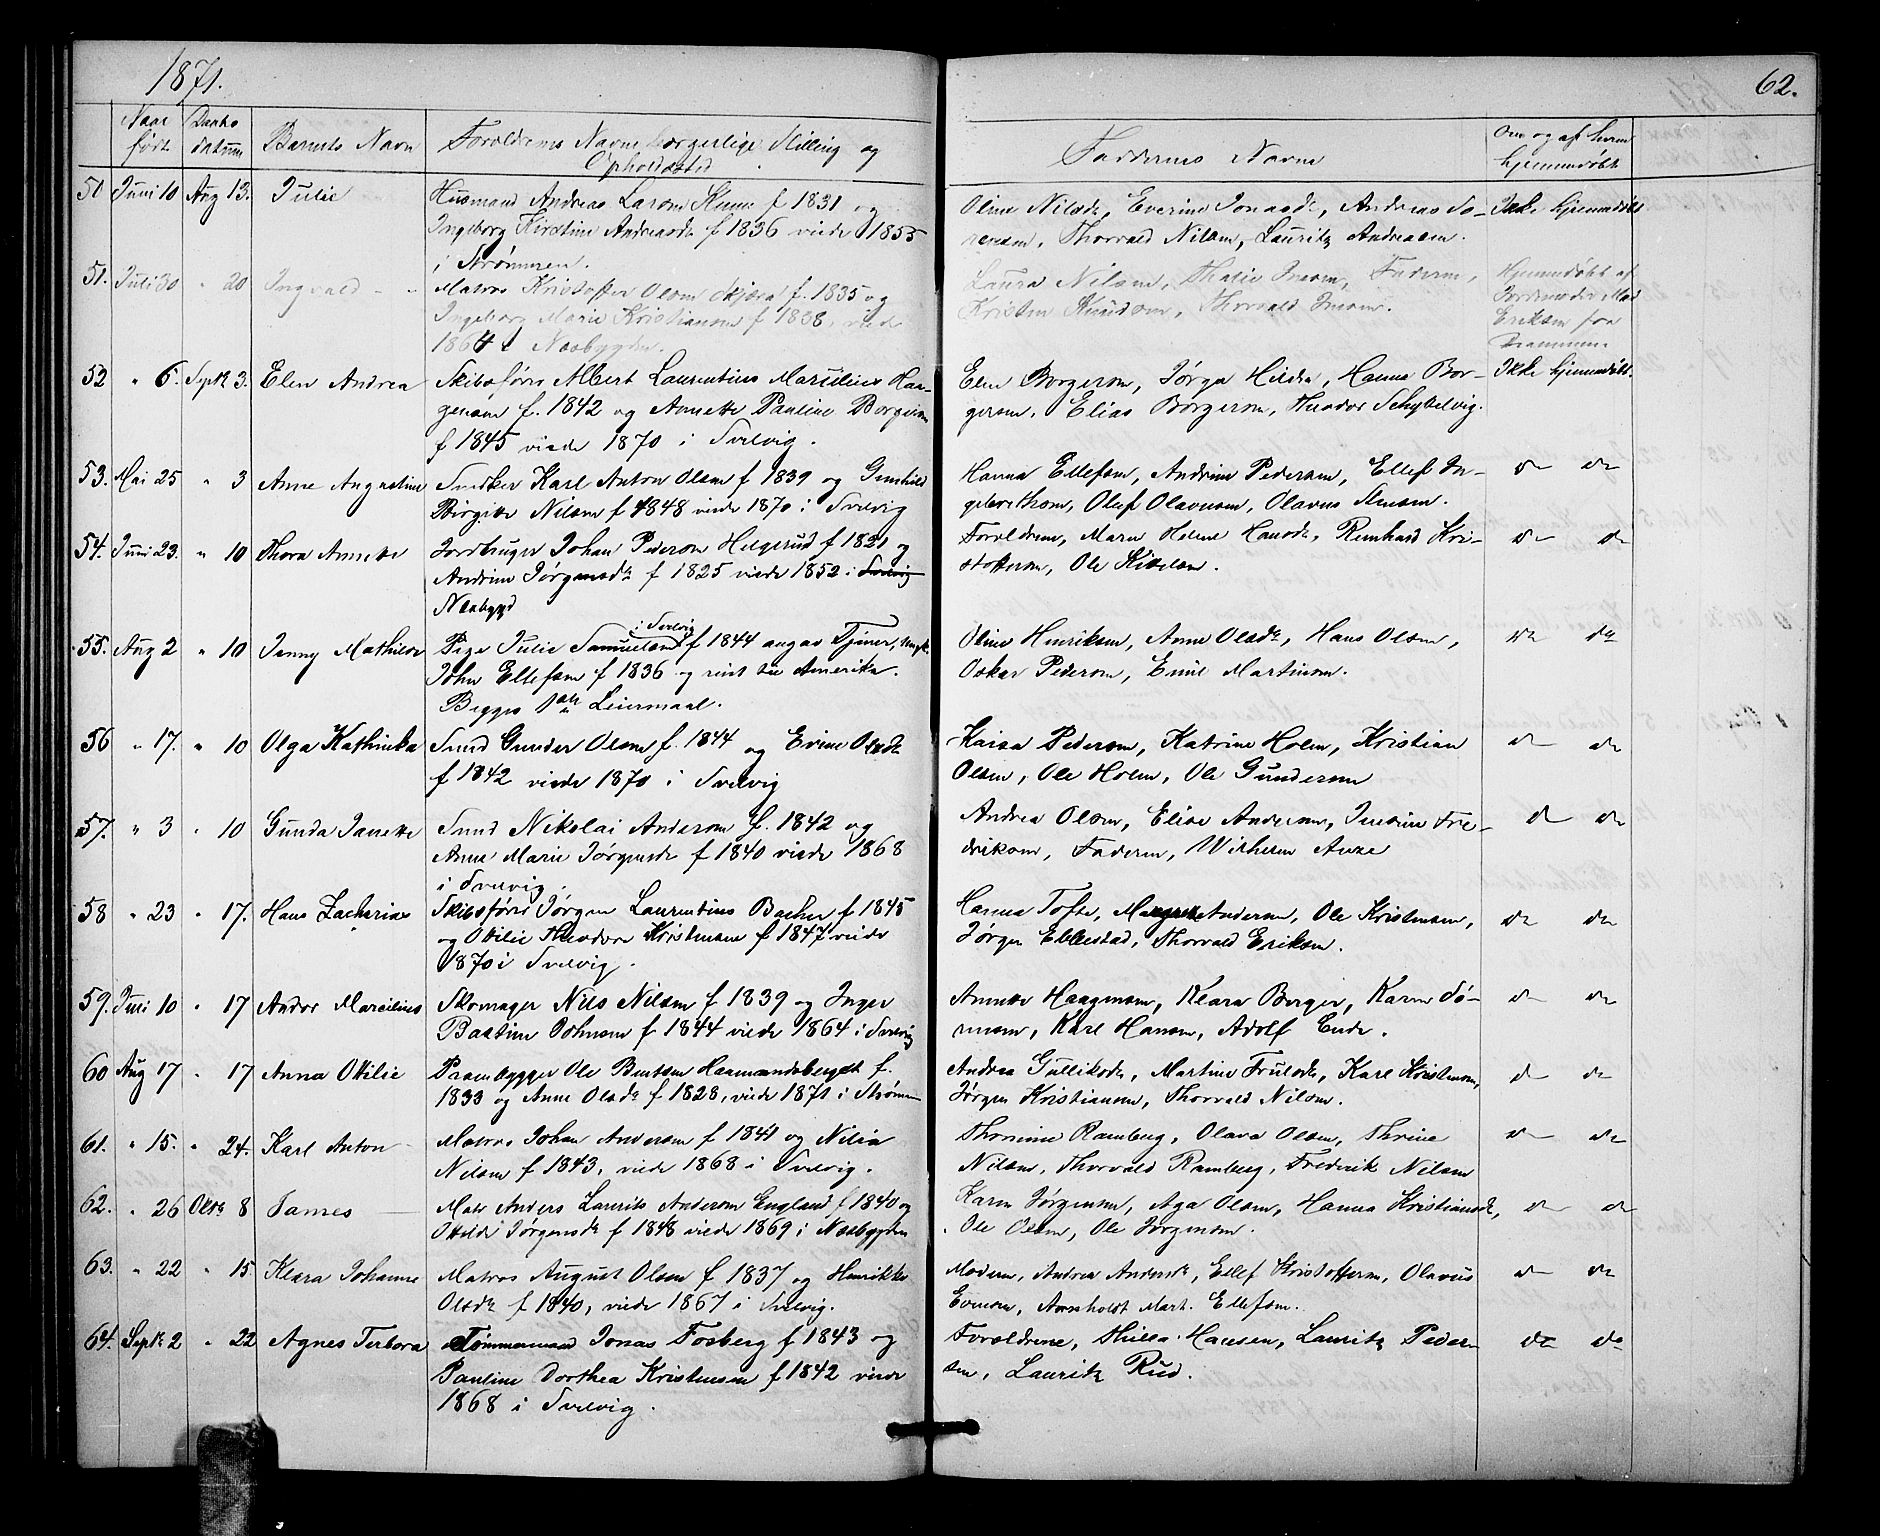 1871.
62.
Naar født
Daabs datum
Barnets Navn
Forældrenes Navne, borgerlige Stilling og Opholdssted
Faddernes Navne
Om og af hvem hjemmedøbt
50 Juni 10 Aug 13. Julie
Husmand Andreas Larsen f 1831 og
Ingeborg Kirstine Andreasdr f 1836 viede 1855
i Strømmen.
Oline Nilsdr, Everine Jonasdr, Andreas Sø-
rensen, Thorvald Nilsen, Lauritz Andreasen.
Ikke hjemmedøbt
51. Juli 30 " 20 Ingvald
Matros Kristoffer Olsen Skjæra f. 1835 og
Ingeborg Marie Kristiansen f 1838, viede
1864 i Næsbygden.
Laura Nilsen, Thalie Jensen, Faderen,
Kristen Knudsen, Thorvald Jensen.
Hjemmedøbt af
Jordemoder Mad
Eriksen fra
Drammen.
52 " 6. Septbr 3. Elen Andrea
Skibsfører Albert Laurentius Marcilius Haa-
gensen f. 1842 og Annette Pauline Borgersen
f 1845 viede 1870 i Svelvig.
Elen Borgersen, Jørgen Hilden, Hanna Bor-
gersen, Elias Borgersen, Theodor Schybelvig.
Ikke hjemmedøbt.
53. Mai 25 " 3 Anne Augustine
Snedker Karl Anton Olsen f 1839 og Gunhild
Birgitte Nilsen f 1848 viede 1870 i Svelvig
Hanna Ellefsen, Andrine Pedersen, Ellef In-
gebrethsen, Oluf Olavesen, Olavus Stensen.
do do
54. Juni 23. " 10 Thora Annette
Jordbruger Johan Pedersen Helgerud f 1821 og
Andrine Jørgensdr f 1825 viede 1852 i Svelvig
Næsbygd
Forældrene, Maren Helene Hansdr, Reinhard Kri-
stoffersen, Ole Kittelsen.
do do
55. Aug 2 " 10 Jenny Mathilde
i Svelvig
Pige Julie Samuelsen f 1844 angav Tjener, Ungk.
John Ellefsen f 1836 og reist til Amerika.
Begges 1ste Leiermaal.
Oline Henriksen, Anne Olsdr, Hans Olsen,
Oskar Pedersen, Emil Martinsen.
do do
56 " 17. " 10 Olga Kathinka
Smed Gunder Olsen f. 1844 og Evine Olsdr
f 1842 viede 1870 i Svelvig
Kaisa Pedersen, Katrine Holm, Kristian
Olsen, Ole Holm, Ole Gundersen
do do
57. " 3 " 10 Gunda Janette
Smed Nikolai Andersen f. 1842 og
Anne Marie Jørgensdr f 1840 viede 1868
i Svelvig.
Andrea Olsen, Elise Andersen, Jensine Fre-
driksen, Faderen, Wilhelm
do do
58 " 23 " 17. Hans Zacharias
Skibsfører Jørgen Laurentius Bacher f 1845
og Otilie Theodora Kristensen f 1847 viede
1870 i Svelvig.
Hanna Tofte, Margrete Andersen, Ole Kristensen,
Jørgen Ellestad, Thorvald Eriksen.
do do
59. Juli 10 " 17 Andor Marcilius
Skomager Nils Nilsen f 1839 og Inger
Bastine Johnsen f 1844 viede 1864 i Svelvig
Annette Haagensen, Klara Berger, Karen Sø-
rensen, Karl Hansen, Adolf Ende.
do do
60 Aug 17 " 17 Anna Otilie
Prambygger Ole Berntsen f.
1833 og Anne Olsdr f 1828, viede 1871 i Strømm
Andrea Gulliksdr, Martine Trulsdr, Karl Kristensen,
Jørgen Kristiansen, Thorvald Nilsen.
do do
61. " 15. " 24. Karl Anton
Matros Johan Andersen f 1841 og Nilia
Nilsen f 1843, viede 1868 i Svelvig.
Thomine Ramberg, Olava Olsen, Thrine
Nilsen, Thorvald Ramberg, Fredrik Nilsen
do do
62. " 26 Oktbr 8 James
Matr Anders Laurits Andersen England f 1840 og
Otilde Jørgensdr f 1848 viede 1869 i Næsbygden
Karen Jørgensen, Aga Olsen, Hanna Kristiansdr,
Ole Olsen, Ole Jørgensen.
do do
63. " 22 " 15. Klara Johanne
Matros August Olsen f 1837 og Henrikke
Olsdr f 1840, viede 1867 i Svelvig.
Moderen, Andrea Andersdr, Ellef Kristoffersen, Olavus
Evensen, Arnholdt Mart. Ellefsen.
do do
64. Septbr 2 " 22 Agnes Terbora
Tømmermand Jonas Fosberg f 1843 og
Pauline Dorthea Kristensen f 1842 viede
1868 i Svelvig.
Forældrene, Hilla Hansen, Lauritz Peder-
sen, Lauritz Rud.
do do